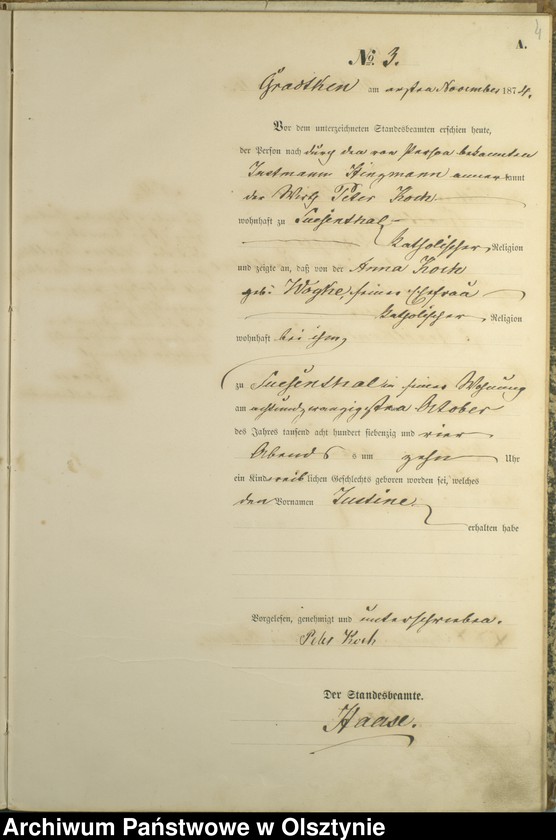 4
A.
No. 3.
Gradtken am ersten November 1874.
Vor dem unterzeichneten Standesbeamten erschien heute,
der Person nach durch den von Person bekannten
Instmann Hingmann anner kannt
der Wirth Peter Koch
wohnhaft zu
katholischer Religion
und zeigte an, daß von der Anna Koch
geb: seiner Ehefrau
katholischer Religion
wohnhaft bei ihm,
zu in seiner Wohnung
am achtundzwanzigsten October
des Jahres tausend acht hundert siebenzig und vier
Abends um zehn Uhr
ein Kind weiblichen Geschlechts geboren worden sei, welches
den Vornamen Justine
erhalten habe
Vorgelesen, genehmigt und unterschrieben.
Peter Koch
Der Standesbeamte.
Haase.
Archiwum Państwowe w Olsztynie